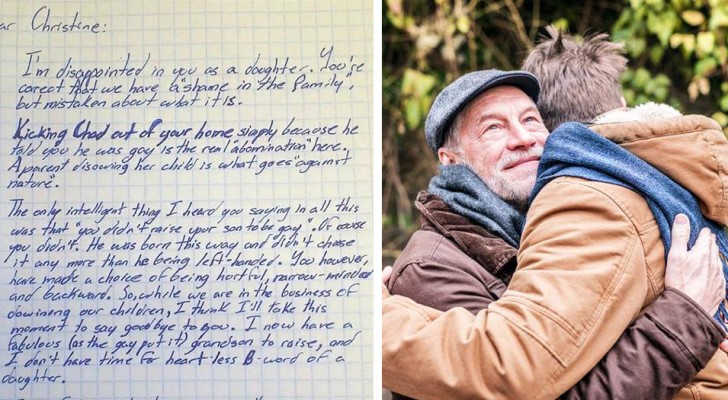 ar Christine:
I'm disappointed in you as a daughter. You're
correct that we have "a shame in the family",
but mistaken about what it is.
Kicking Chad out of your home simply because he
told you he was gay is the real "abomination" here.
A parent disowing her child is what goes "against
nature".
The only intelligent thing I heard you saying in all this
was that "you didn't raise your son to be gay". Of couse
you didn't. He was born this way and didn't choose
it any more than he being left-handed. You however,
have made a choice of being hurtful, narrow-minded
and backward. So, while we are in the business of
disowning our children, I think I'll take this
moment to say goodbye to you. I now have a
fabulous (as the gay put it) grandson to raise, and
I don't have time for heart less B-word of a
daughter.